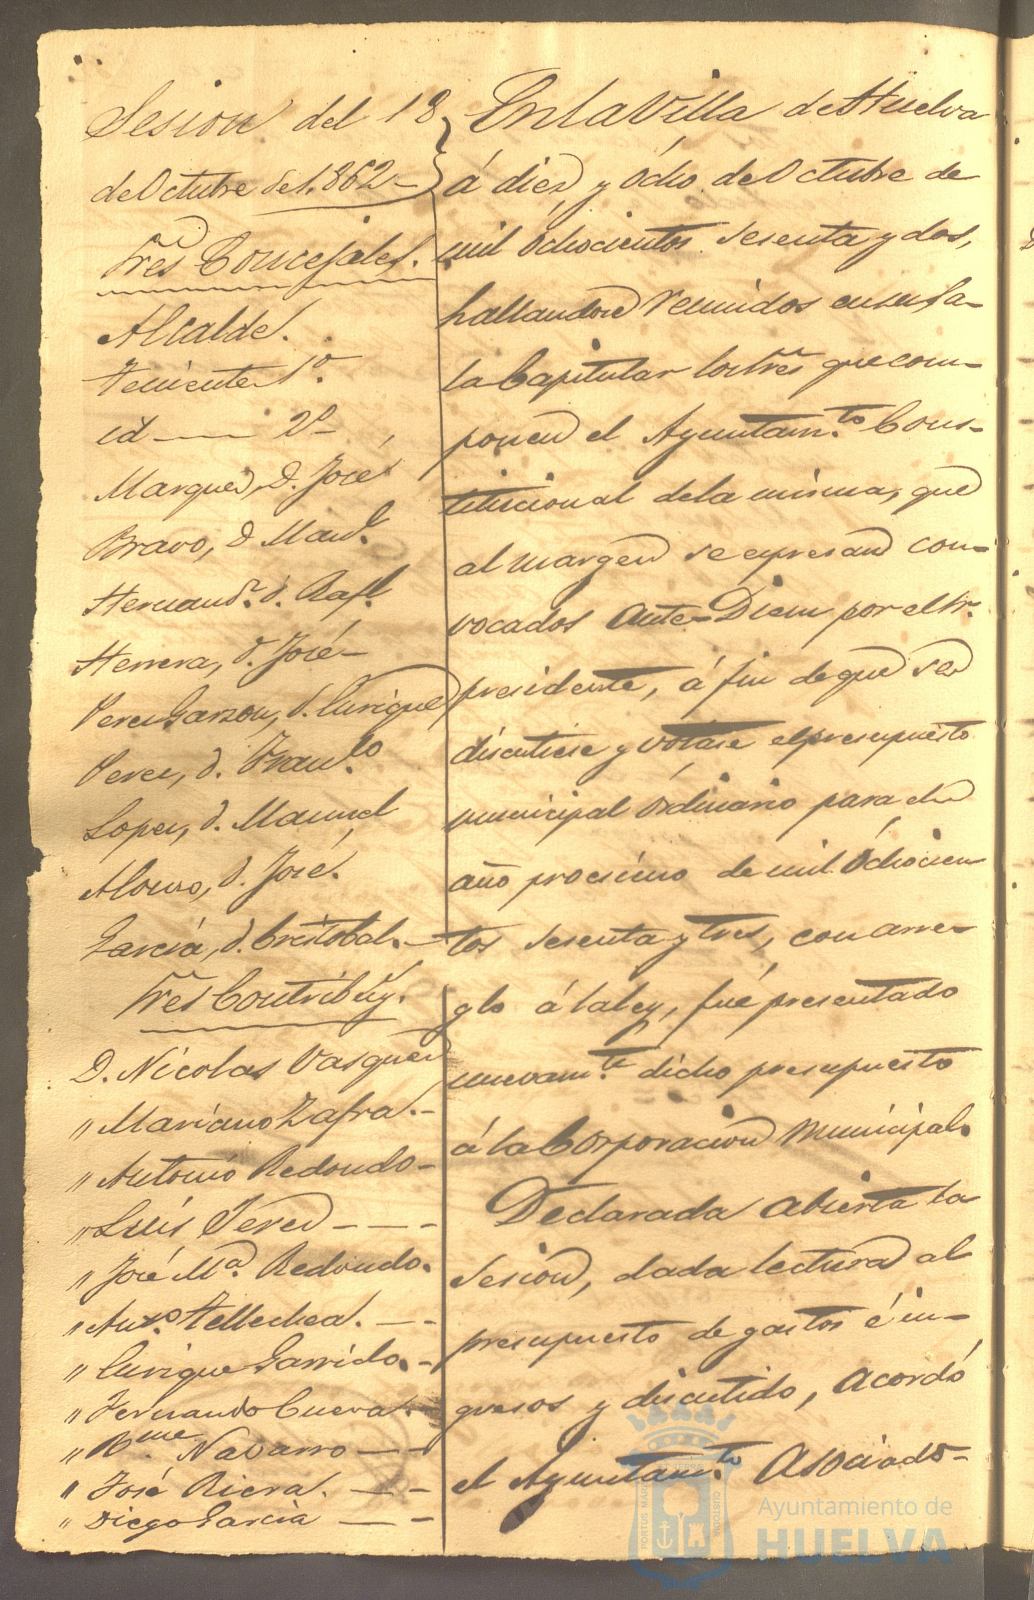 Sesion del 18
de Octubre de 1.862 —
Sres Concejales.
Alcalde.
Teniente 1º.
id —— 2º —
Marquez, D. José
Bravo, D Manl.
Hernandz. d. Rafl.
Herrera, d. José —
Perez Garzon, d. Enrique
Perez, d. Franco.
Lopez, d. Manuel
Alonso, d. José.
Garcia, d. Cristobal. —
Sres Contribuy.
D. Nicolas Vasquez
„ Mariano Zafra. —
„ Antonio Redondo —
„ Luis Perez — — —
„ José Mª. Redondo.
„ Anto. Tellechea. — —
„ Enrique Garrido. —
„ Fernando Cueva. —
„ Bme. Navarro — —
„ José Riera. — —
„ Diego Garcia — —
En la Villa de Huelva
á diez y ócho de Octubre de
mil óchocientos sesenta y dos,
hallandose reunidos en su Sa-
la Capitular los Sres que com-
ponen el Ayuntamto. Cons-
titucional de la misma, que
al margen se espresan con-
vocados Ante-Diem por el Sr.
presidente, á fin de que se
discutiese y votase el presupuesto
municipal órdinario para el
año procsimo de mil óchocien
tos sesenta y tres, con arre-
glo á la ley, fué presentado
nuevamte. dicho presupuesto
á la Corporacion Municipal.
Declarada abierta la
sesion, dada lectura al
presupuesto de gastos é in-
gresos y discutido, Acordó
el Ayuntamto. Asociado-
Ayuntamiento de
HUELVA